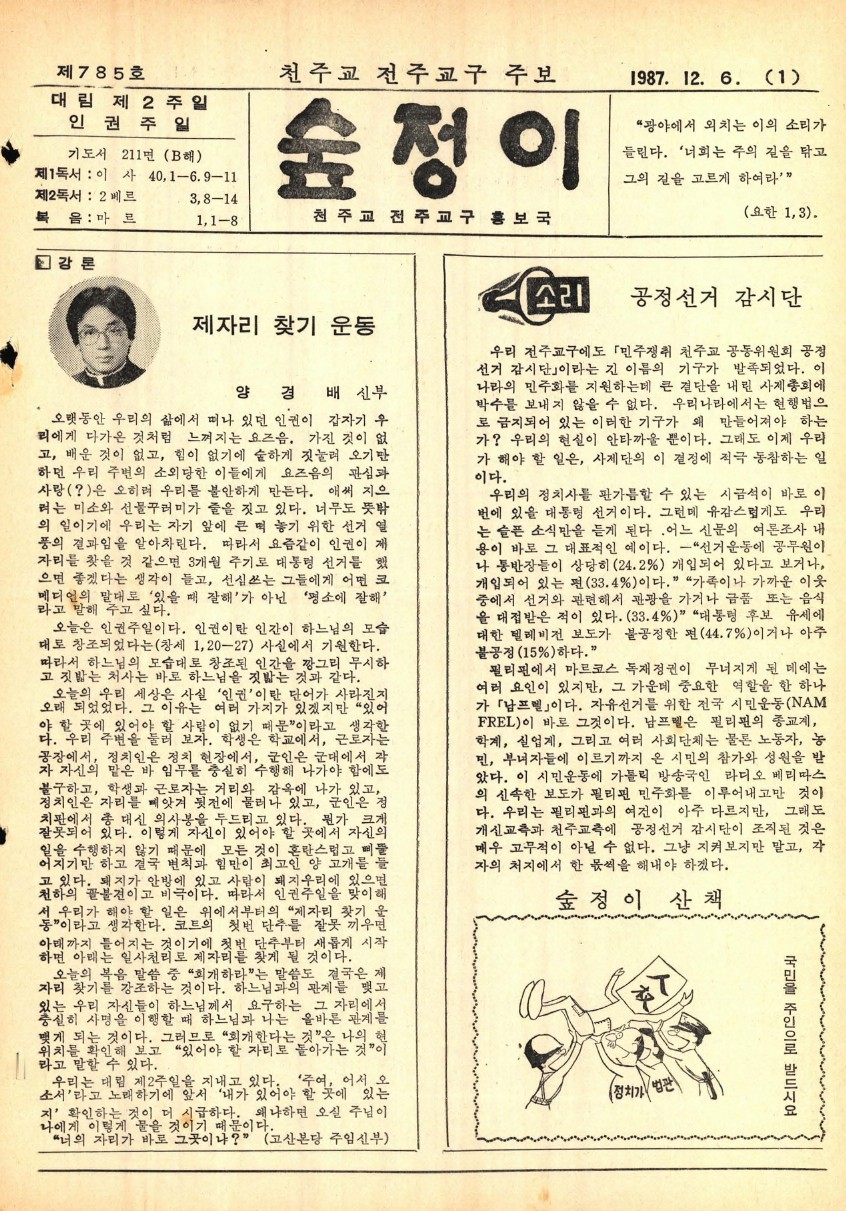 제785호
천주교 전주교구 주보
1987. 12. 6. (1)
대림 제2주일
인권주일
기도서 211면 (B해)
제1독서: 이 사 40,1-6.9-11
제2독서: 2베르 3,8-14
복 음: 마 르 1,1-8
숲정이
천주교 전주교구 홍보국
“광야에서 외치는 이의 소리가
들린다. ‘너희는 주의 길을 닦고
그의 길을 고르게 하여라’”
(요한 1,3).
강론
제자리 찾기 운동
양 경 배 신부
오랫동안 우리의 삶에서 떠나 있던 인권이 갑자기 우
리에게 다가온 것처럼 느껴지는 요즈음. 가진 것이 없
고, 배운 것이 없고, 힘이 없기에 숱하게 짓눌려 오기만
하던 우리 주변의 소외당한 이들에게 요즈음의 관심과
사랑(?)은 오히려 우리를 불안하게 만든다. 애써 지으
려는 미소와 선물꾸러미가 줄을 짓고 있다. 너무도 뜻밖
의 일이기에 우리는 자기 앞에 큰 떡 놓기 위한 선거 열
풍의 결과임을 알아차린다. 따라서 요즘같이 인권이 제
자리를 찾을 것 같으면 3개월 주기로 대통령 선거를 했
으면 좋겠다는 생각이 들고, 선심쓰는 그들에게 어떤 코
메디언의 말대로 ‘있을 때 잘해’가 아닌 ‘평소에 잘해’
라고 말해 주고 싶다.
오늘은 인권주일이다. 인권이란 인간이 하느님의 모습
대로 창조되었다는(창세 1,20-27) 사실에서 기원한다.
따라서 하느님의 모습대로 창조된 인간을 깡그리 무시하
고 짓밟는 처사는 바로 하느님을 짓밟는 것과 같다.
오늘의 우리 세상은 사실 ‘인권’이란 단어가 사라진지
오래 되었었다. 그 이유는 여러 가지가 있겠지만 “있어
야 할 곳에 있어야 할 사람이 없기 때문”이라고 생각한
다. 우리 주변을 둘러 보자. 학생은 학교에서, 근로자는
공장에서, 정치인은 정치 현장에서, 군인은 군대에서 각
자 자신의 맡은 바 임무를 충실히 수행해 나가야 함에도
불구하고, 학생과 근로자는 거리와 감옥에 나가 있고,
정치인은 자리를 빼앗겨 뒷전에 물러나 있고, 군인은 정
치판에서 총 대신 의사봉을 두드리고 있다. 뭔가 크게
잘못되어 있다. 이렇게 자신이 있어야 할 곳에서 자신의
일을 수행하지 않기 때문에 모든 것이 혼란스럽고 삐뚤
어지기만 하고 결국 변칙과 힘만이 최고인 양 고개를 들
고 있다. 돼지가 안방에 있고 사람이 돼지우리에 있으면
천하의 꼴불견이고 비극이다. 따라서 인권주일을 맞이해
서 우리가 해야 할 일은 위에서부터의 “제자리 찾기 운
동”이라고 생각한다. 코트의 첫번 단추를 잘못 끼우면
아래까지 틀어지는 것이기에 첫번 단추부터 새롭게 시작
하면 아래는 일사천리로 제자리를 찾게 될 것이다.
오늘의 복음 말씀 중 “회개하라”는 말씀도 결국은 제
자리 찾기를 강조하는 것이다. 하느님과의 관계를 맺고
있는 우리 자신들이 하느님께서 요구하는 그 자리에서
충실히 사명을 이행할 때 하느님과 나는 올바른 관계를
맺게 되는 것이다. 그러므로 “회개한다는 것”은 나의 현
위치를 확인해 보고 “있어야 할 자리로 돌아가는 것”이
라고 말할 수 있다.
우리는 대림 제2주일을 지내고 있다. ‘주여, 어서 오
소서’라고 노래하기에 앞서 ‘내가 있어야 할 곳에 있는
지’ 확인하는 것이 더 시급하다. 왜냐하면 오실 주님이
나에게 이렇게 물을 것이기 때문이다.
“너의 자리가 바로 그곳이냐?” (고산본당 주임신부)
소리
공정선거 감시단
우리 전주교구에도 「민주쟁취 천주교 공동위원회 공정
선거 감시단」이라는 긴 이름의 기구가 발족되었다. 이
나라의 민주화를 지원하는데 큰 결단을 내린 사제총회에
박수를 보내지 않을 수 없다. 우리나라에서는 현행법으
로 금지되어 있는 이러한 기구가 왜 만들어져야 하는
가? 우리의 현실이 안타까울 뿐이다. 그래도 이제 우리
가 해야 할 일은, 사제단의 이 결정에 적극 동참하는 일
이다.
우리의 정치사를 판가름할 수 있는 시금석이 바로 이
번에 있을 대통령 선거이다. 그런데 유감스럽게도 우리
는 슬픈 소식만을 듣게 된다 .어느 신문의 여론조사 내
용이 바로 그 대표적인 예이다. —“선거운동에 공무원이
나 통반장들이 상당히(24.2%) 개입되어 있다고 보거나,
개입되어 있는 편(33.4%)이다.” “가족이나 가까운 이웃
중에서 선거와 관련해서 관광을 가거나 금품 또는 음식
을 대접받은 적이 있다.(33.4%)” “대통령 후보 유세에
대한 텔레비전 보도가 불공정한 편(44.7%)이거나 아주
불공정(15%)하다.”
필리핀에서 마르코스 독재정권이 무너지게 된 데에는
여러 요인이 있지만, 그 가운데 중요한 역할을 한 하나
가 「남프렐」이다. 자유선거를 위한 전국 시민운동(NAM
FREL)이 바로 그것이다. 남프렐은 필리핀의 종교계,
학계, 실업계, 그리고 여러 사회단체는 물론 노동자, 농
민, 부녀자들에 이르기까지 온 시민의 참가와 성원을 받
았다. 이 시민운동에 가톨릭 방송국인 라디오 베리따스
의 신속한 보도가 필리핀 민주화를 이루어내고만 것이
다. 우리는 필리핀과의 여건이 아주 다르지만, 그래도
개신교측과 천주교측에 공정선거 감시단이 조직된 것은
매우 고무적이 아닐 수 없다. 그냥 지켜보지만 말고, 각
자의 처지에서 한 몫씩을 해내야 하겠다.
숲정이 산책
국민을 주인으로 받드시요
정치가
법관